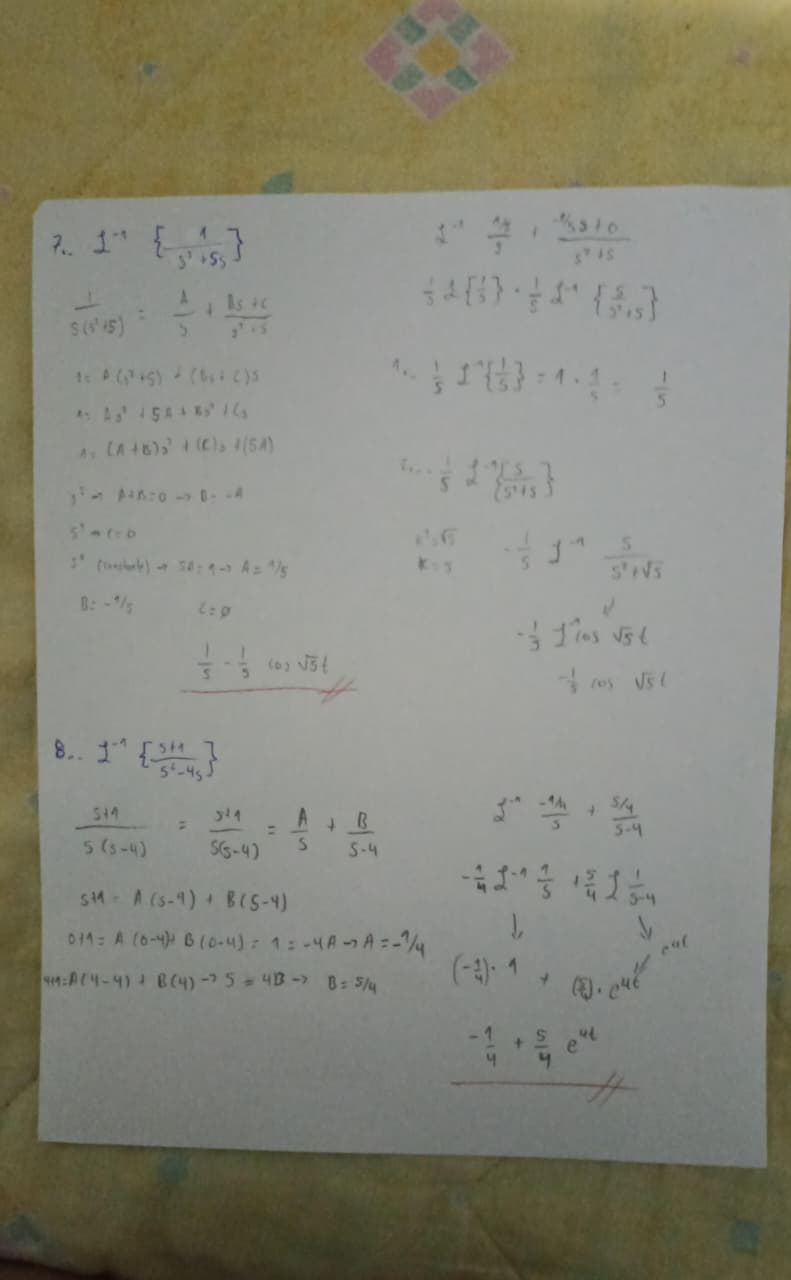 7.. L⁻¹ { 1 / s³+5s }
1 / s(s²+5) = A/s + Bs+C / s²+5
1= A(s²+5) + (Bs+C)s
1= As² + 5A + Bs² + Cs
1= (A+B)s² + (C)s + (5A)
s² → A+B=0 → B=-A
s¹ → C=0
s⁰ (constante) → 5A=1 → A=1/5
B=-1/5 C=0
1/5 - 1/5 cos √5t
L⁻¹ 1/5 / s + -1/5s+0 / s²+5
1/5 L {1/s} · 1/5 L⁻¹ { s / s²+5 }
1.. 1/5 L⁻¹ {1/s} = 1 · 1/5 = 1/5
1/5 L⁻¹ { s / s²+5 }
-1/5 L⁻¹ s / s²+√5
K=5
L⁻¹ cos √5t
cos √5t
8.. L⁻¹ { s+1 / s²-4s }
s+1 / s(s-4) = s+1 / s(s-4) = A/s + B / s-4
s+1= A(s-4) + B(s-4)
0+1= A(0-4)+ B(0-4)= 1= -4A → A=-1/4
4+1=A(4-4) + B(4) → 5 = 4B → B=5/4
L⁻¹ -1/4 / s + 5/4 / s-4
-1/4 L⁻¹ 1/s + 5/4 L 1 / s-4
↓ ↘ eat
(-1/4) · 1 + (5/4) · e4t
-1/4 + 5/4 e4t